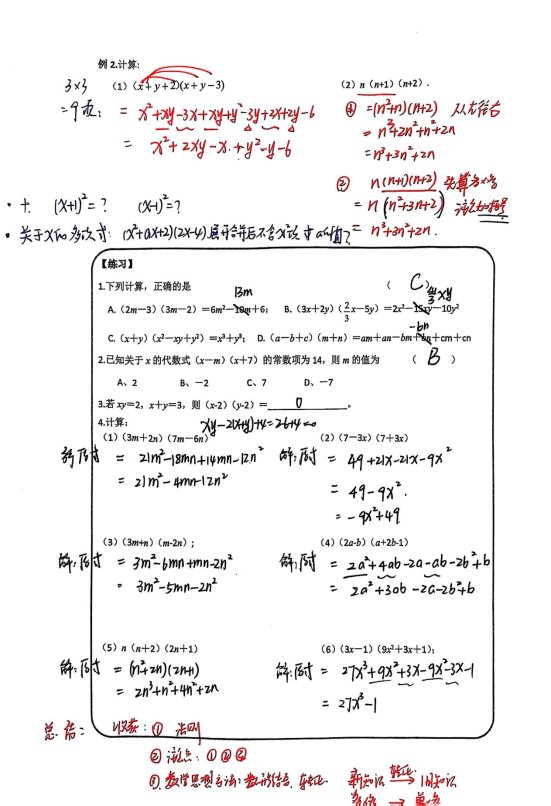 例 2.计算:
3×3
(1) (x+y+2)(x+y-3)
(2) n (n+1) (n+2) .
=9项: = x²+xy-3x+xy+y²-3y+2x+2y-6
= x²+2xy-x+y²-y-6
① =(n²+n)(n+2) 从左往右
= n³+2n²+n²+2n
=n³+3n²+2n
② n(n+1)(n+2)
= n(n²+3n+2)
= n³+3n²+2n.
(x+1)²=? (x-1)²=?
关于x的多项式: (x²+ax+2)(2x-4)展开合并后不含x²项 求a的值?
【练习】
1.下列计算，正确的是 ( C )
13m
A. (2m-3) (3m-2) =6m²-10m+6; B. (3x+2y) (2/3x-5y) =2x²-15xy-10y²
-bn
C. (x+y) (x²-xy+y²) =x³+y³; D. (a-b+c) (m+n) =am+an-bm+bn+cm+cn
2.已知关于 x 的代数式 (x-m) (x+7) 的常数项为 14，则 m 的值为 ( B )
A、2 B、-2 C、7 D、-7
3.若 xy=2，x+y=3，则 (x-2) (y-2) = 0 。
xy-2(x+y)+4=2-6+4=0
4.计算:
(1) (3m+2n) (7m-6n)
(2) (7-3x) (7+3x)
解:原式 = 21m²-18mn+14mn-12n²
= 21m²-4mn-12n²
解:原式 = 49+21x-21x-9x²
= 49-9x².
= -9x²+49
(3) (3m+n) (m-2n) ;
(4) (2a-b) (a+2b-1)
解:原式 = 3m²-6mn+mn-2n²
= 3m²-5mn-2n²
解:原式 = 2a²+4ab-2a-ab-2b²+b
= 2a²+3ab-2a-2b²+b
(5) n (n+2) (2n+1)
(6) (3x-1) (9x²+3x+1);
解:原式 = (n²+2n)(2n+1)
= 2n³+n²+4n²+2n
解:原式 = 27x³+9x²+3x-9x²-3x-1
= 27x³-1
总结: 收获: ① 法则
② 注意点: ① ② ③
③ 数学思想方法: 数形结合、转化 新知识 转化→ 旧知识